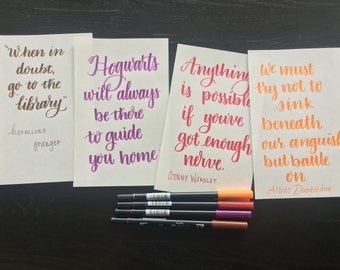 "When in
doubt,
go to the
library"
-hermione
granger
Hogwarts
will always
be there
to guide
you home
Anything
is possible
if you've
got enough
nerve.
GINNY WEASLEY
We must
try not to
sink
beneath
our anguish
but battle
on.
Albus Dumbledore